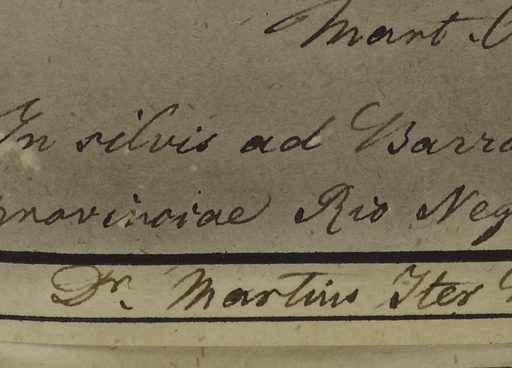 Mart.
In silvis ad Barra
provinciae Rio Neg
Dr. Martius Iter